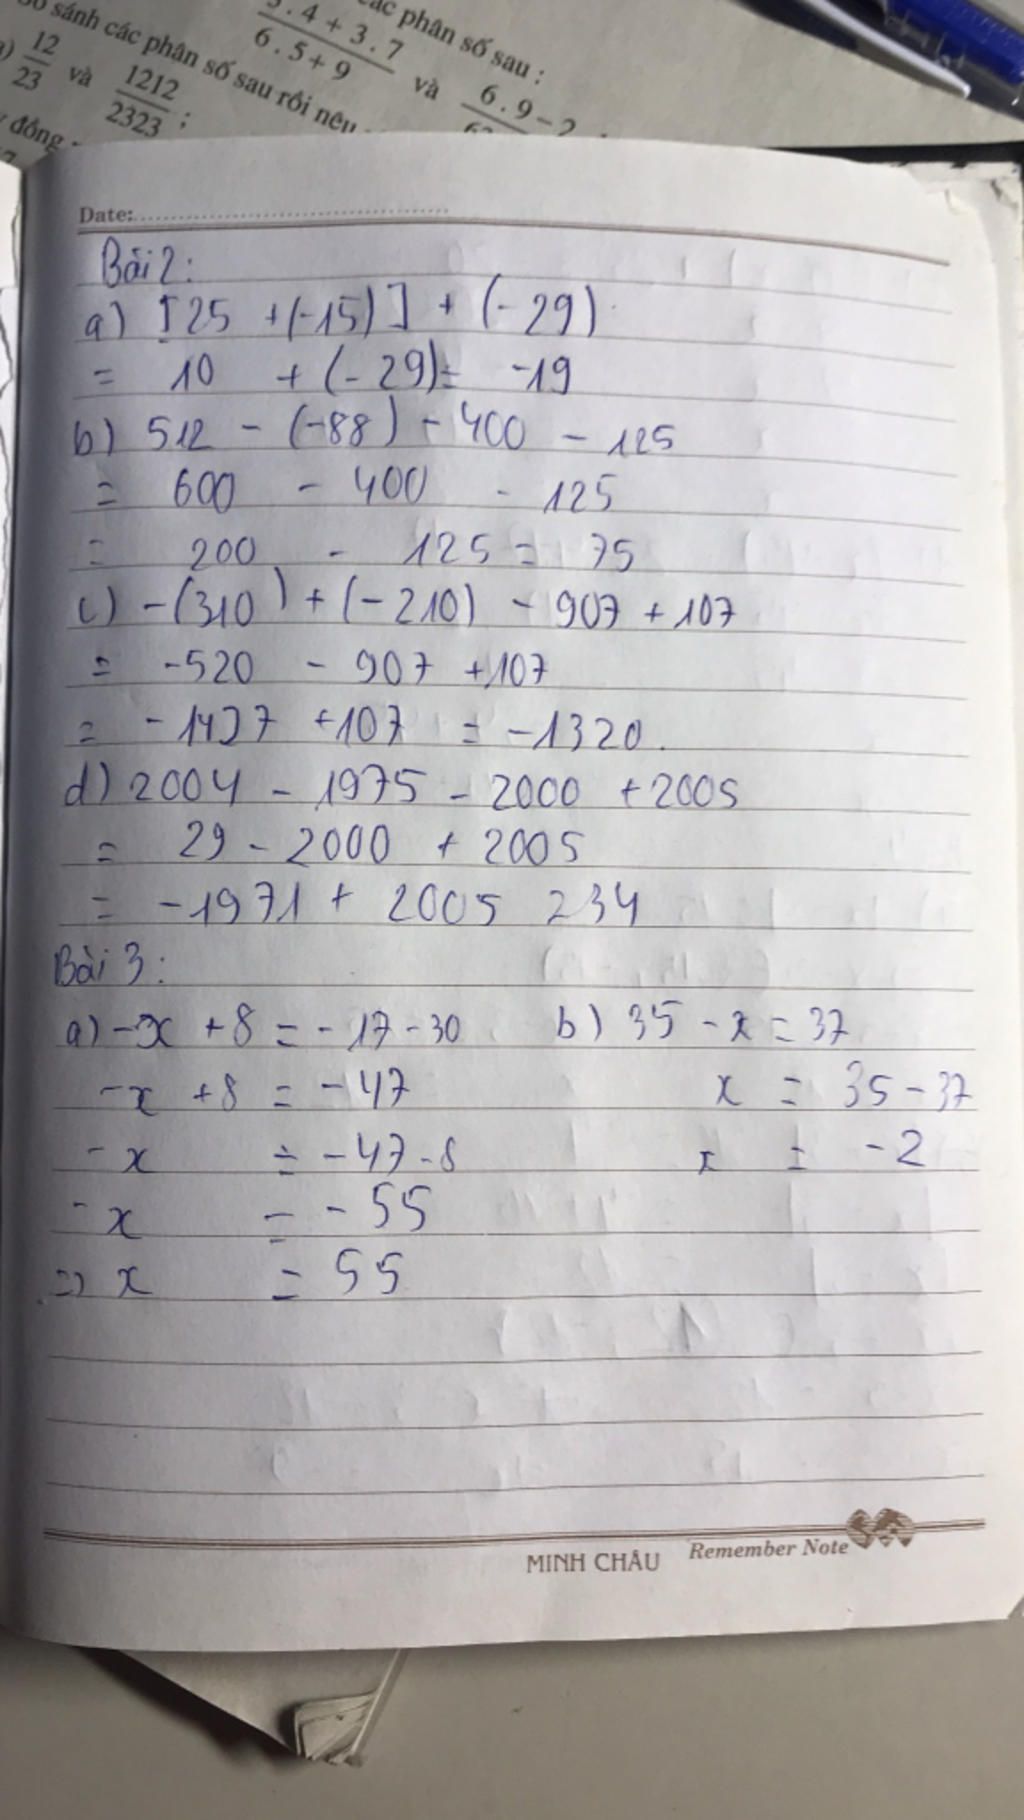 sánh các phân số sau rồi nêu
các phân số sau :
12/23 và 1212/2323 ;
. 4 + 3 . 7 / 6 . 5 + 9 và 6 . 9 – 2
đồng
Date:
Bài 2:
a) [25 + (-15)] + (-29)
= 10 + (-29) = -19
b) 512 - (-88) - 400 - 125
= 600 - 400 - 125
= 200 - 125 = 75
c) -(310) + (-210) - 907 + 107
= -520 - 907 + 107
= -1427 + 107 = -1320.
d) 2004 - 1975 - 2000 + 2005
= 29 - 2000 + 2005
= -1971 + 2005 = 34
Bài 3:
a) -x + 8 = -17 - 30 b) 35 - x = 37
-x + 8 = -47 x = 35 - 37
-x = -47 - 8 x = -2
-x = -55
=> x = 55
MINH CHÂU Remember Note